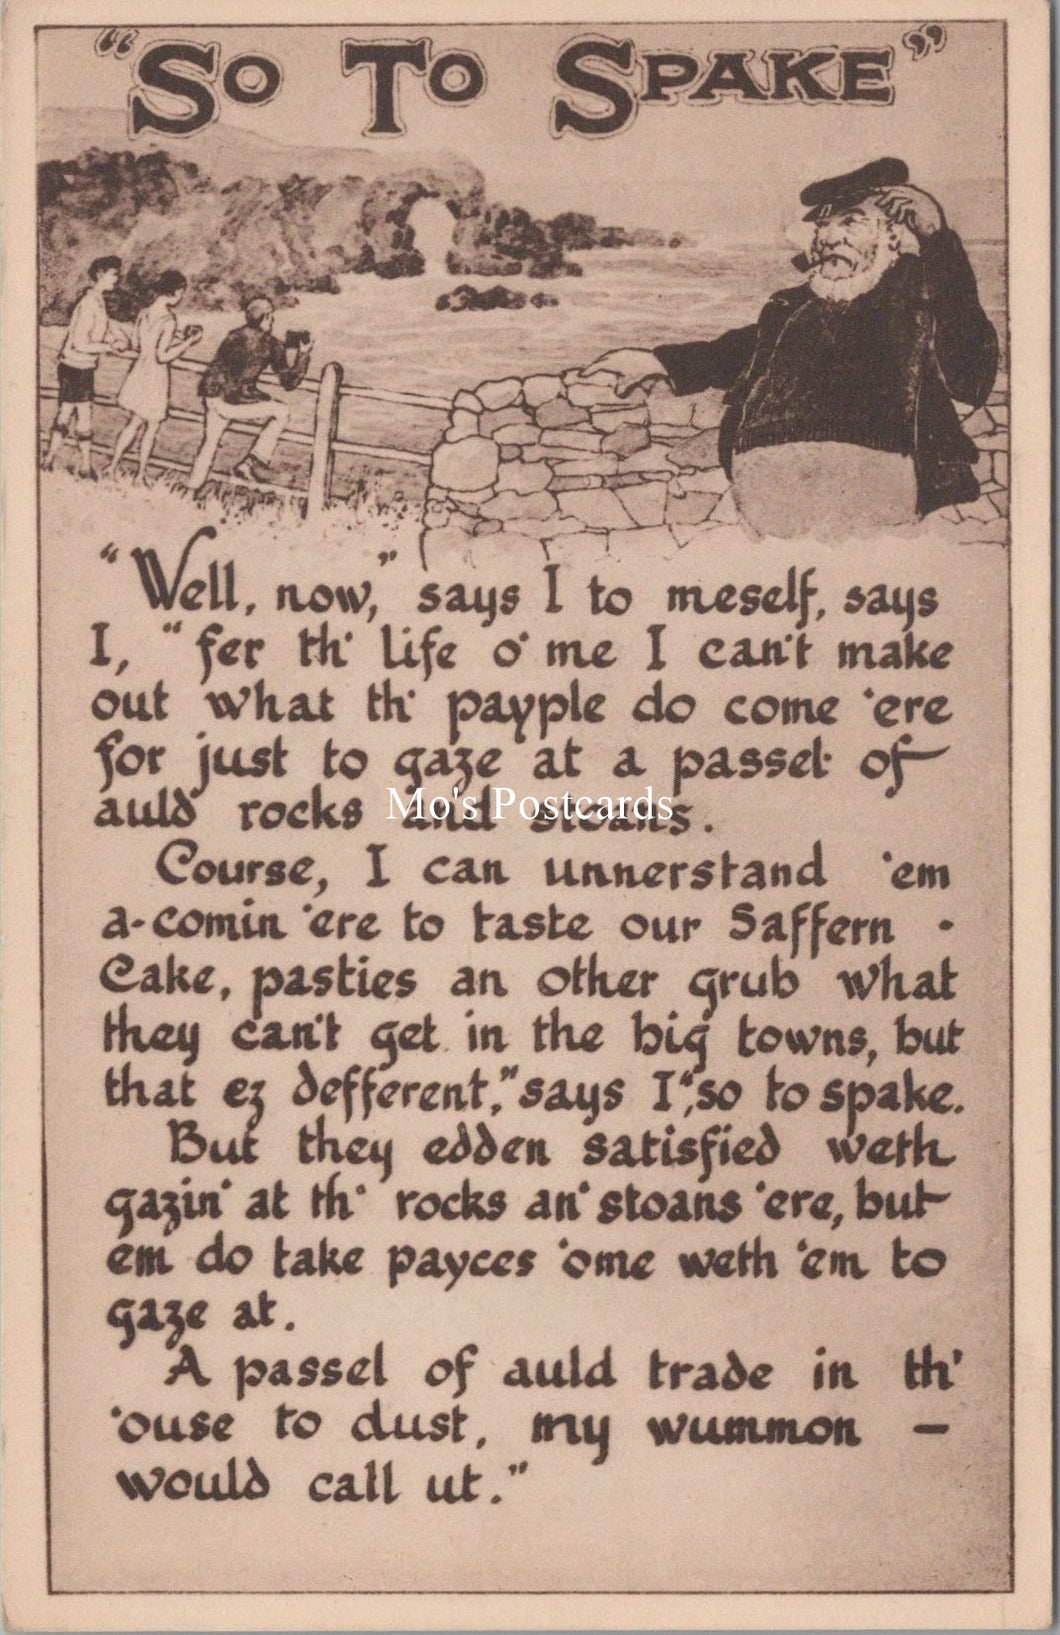 "So To Spake"
"Well, now," says I to meself, says
I, "fer th' life o' me I can't make
out what th' payple do come 'ere
for just to gaze at a passel of
auld rocks and stoans.
Mo's Postcards
Course, I can unnerstand 'em
a-comin 'ere to taste our Saffern -
Cake, pasties an other grub what
they can't get in the big towns, but
that ez defferent," says I, "so to spake.
But they edden satisfied weth
gazin' at th' rocks an' stoans 'ere, but
em do take payces 'ome weth 'em to
gaze at.
A passel of auld trade in th'
'ouse to dust, my wummon —
would call ut."